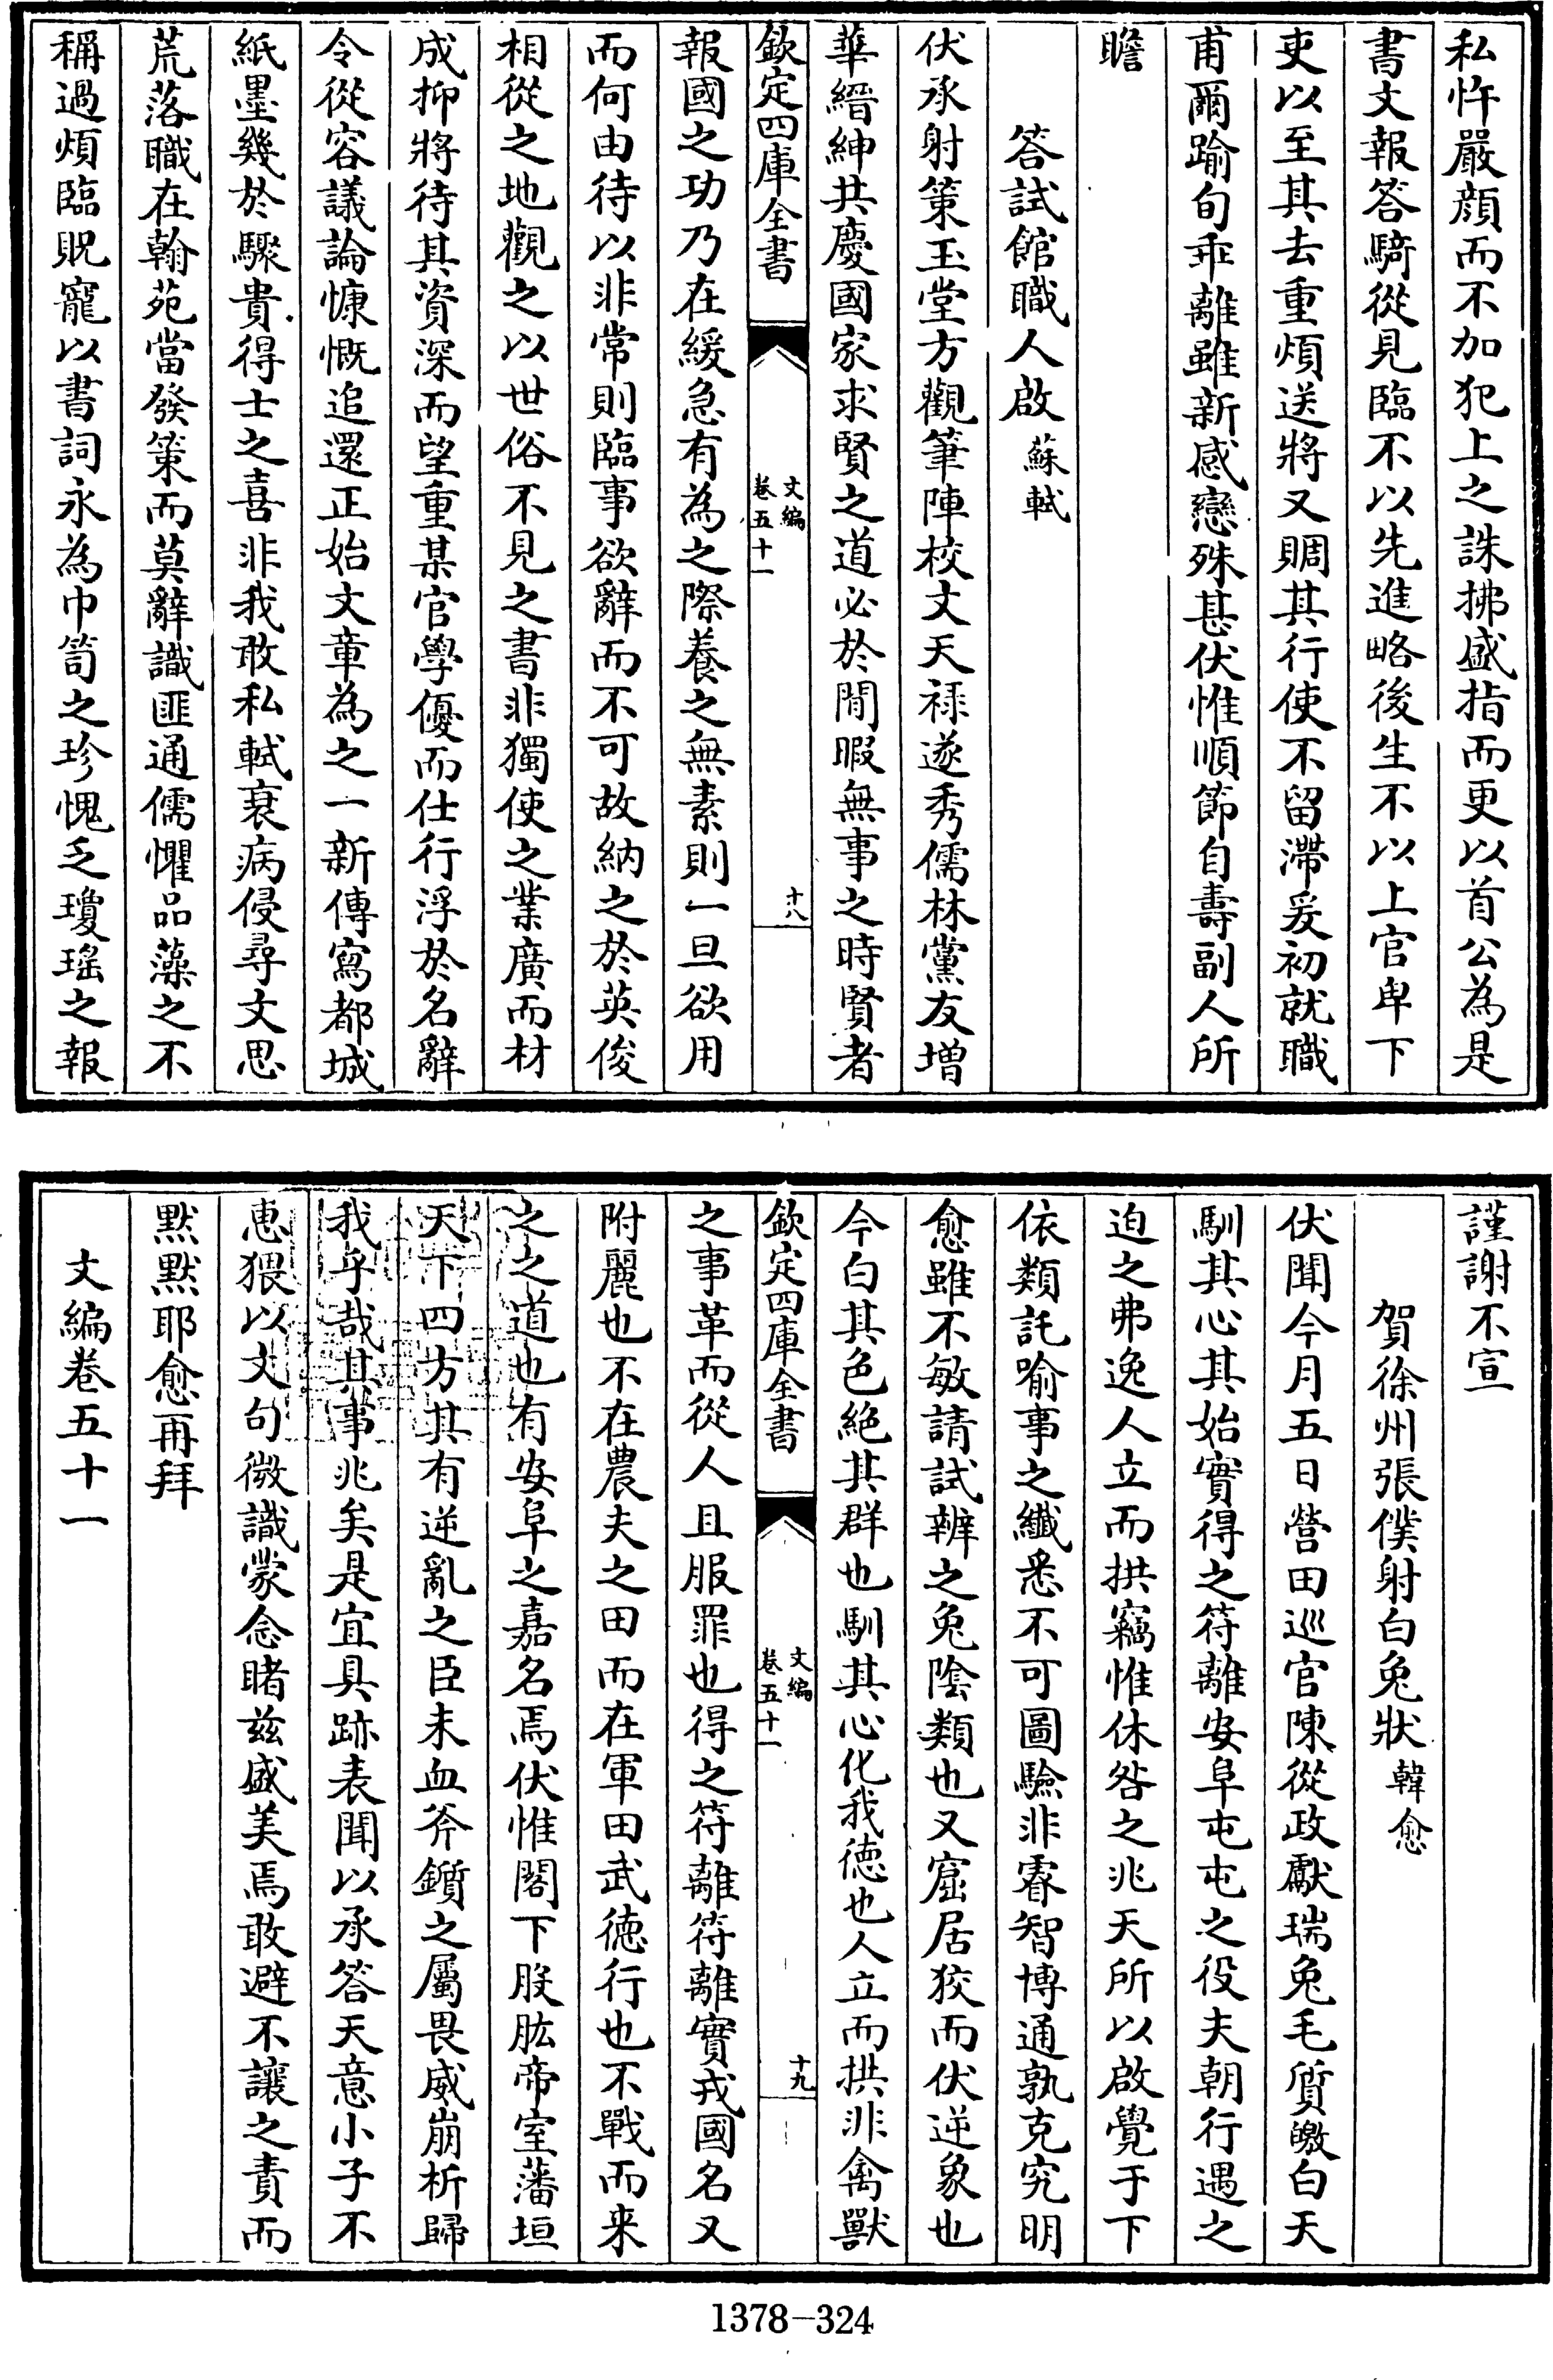 私忤嚴顔而不加犯上之誅拂盛指而更以首公為是
書文報答騎從見臨不以先進略後生不以上官卑下
吏以至其去重煩送將又賙其行使不留滯爰初就職
甫爾踰旬乖離雖新感戀殊甚伏惟順節自壽副人所
瞻
答試館職人啟 蘇軾
伏承射策玉堂方觀筆陣校文天祿遂秀儒林黨友增
華縉紳共慶國家求賢之道必於閒暇無事之時賢者
欽定四庫全書
文編
卷五十一
十八
報國之功乃在緩急有為之際養之無素則一旦欲用
而何由待以非常則臨事欲辭而不可故納之於英俊
相從之地觀之以世俗不見之書非獨使之業廣而材
成抑將待其資深而望重某官學優而仕行浮於名辭
令從容議論慷慨追還正始文章為之一新傳寫都城
紙墨幾於驟貴得士之喜非我敢私軾衰病侵尋文思
荒落職在翰苑當發策而莫辭識匪通儒懼品藻之不
稱過煩臨貺寵以書詞永為巾笥之珍愧乏瓊瑤之報
謹謝不宣
賀徐州張僕射白兔狀 韓愈
伏聞今月五日營田巡官陳從政獻瑞兔毛質皦白天
馴其心其始實得之符離安阜屯屯之役夫朝行遇之
迫之弗逸人立而拱竊惟休咎之兆天所以啟覺于下
依類託喻事之纖悉不可圖驗非睿智博通孰克究明
愈雖不敏請試辨之兔陰類也又窟居狡而伏逆象也
今白其色絕其群也馴其心化我德也人立而拱非禽獸
欽定四庫全書
文編
卷五十一
十九
之事革而從人且服罪也得之符離符離實戎國名又
附麗也不在農夫之田而在軍田武德行也不戰而来
之之道也有安阜之嘉名焉伏惟閣下股肱帝室藩垣
天下四方其有逆亂之臣未血斧鑕之屬畏威崩析歸
我乎哉其事兆矣是宜具跡表聞以承答天意小子不
惠猥以文句微識蒙念睹茲盛美焉敢避不讓之責而
默默耶愈再拜
文編卷五十一
1378-324